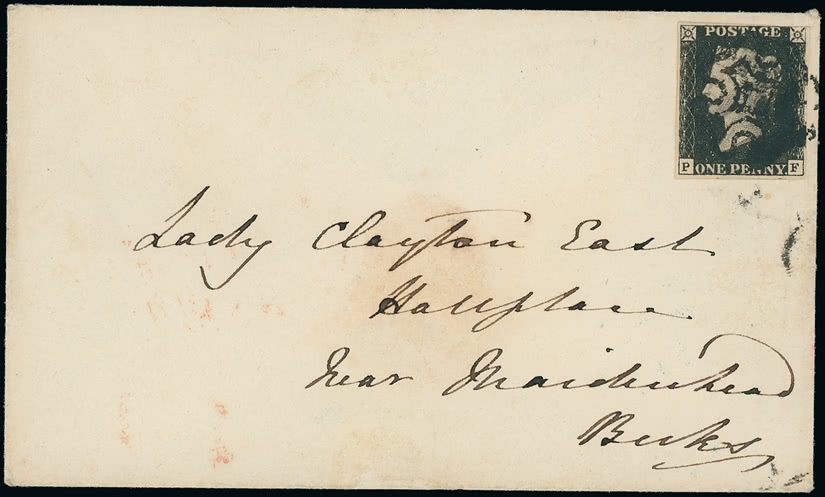 POSTAGE
P ONE PENNY F
Lady Clayton East
Hallplace
Near Maidenhead
Berks